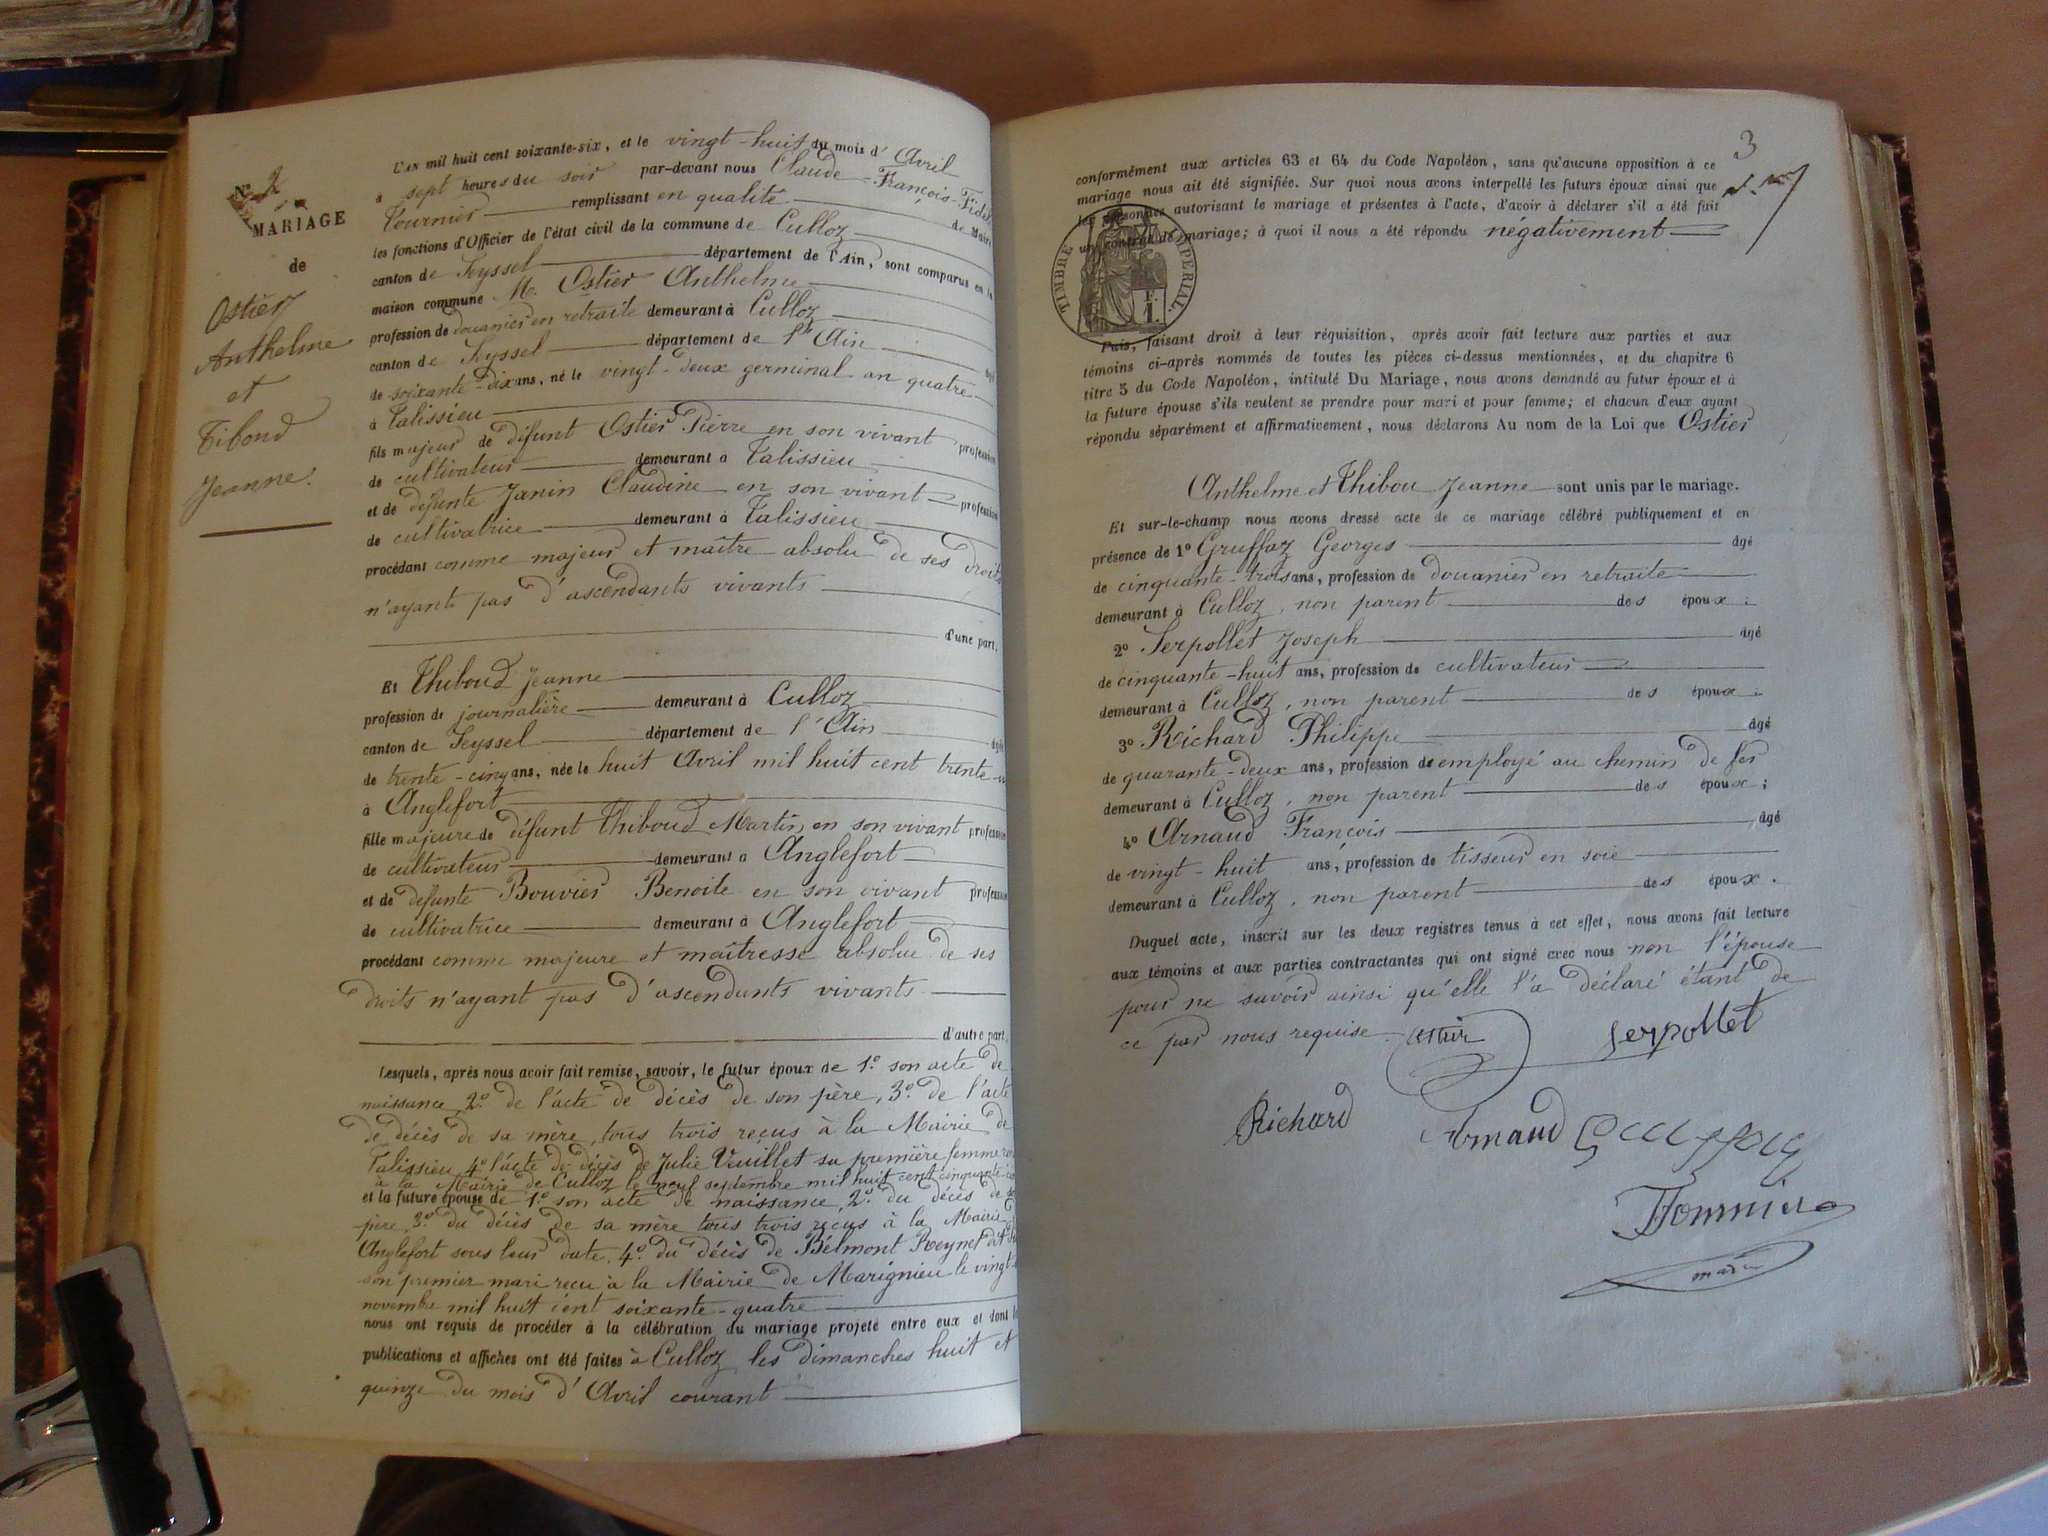 N° 2
MARIAGE
de
Ostier
Anthelme
et
Tibond
Jeanne.
L'AN mil huit cent soixante-six, et le vingt-huit du mois d'Avril
à sept heures du soir par-devant nous Claude-François-Fidèl
Tournier remplissant en qualité de Maire
les fonctions d'Officier de l'état civil de la commune de Culloz
canton de Seyssel département de l'Ain, sont comparus en la
maison commune M. Ostier Anthelme
profession de douanier en retraite demeurant à Culloz
canton de Seyssel département de l'Ain âgé
de soixante-dix ans, né le vingt-deux germinal an quatre
à Talissieu
fils majeur de défunt Ostier Pierre en son vivant profession
de cultivateur demeurant à Talissieu
et de défunte Janin Claudine en son vivant profession
de cultivatrice demeurant à Talissieu
procédant comme majeur et maître absolu de ses droits
n'ayant pas d'ascendants vivants
d'une part,
Et Thiboud Jeanne
profession de journalière demeurant à Culloz
canton de Seyssel département de l'Ain âgée
de trente-cinq ans, née le huit Avril mil huit cent trente-u
à Anglefort
fille majeure de défunt Thiboud Martin, en son vivant profession
de cultivateur demeurant à Anglefort
et de défunte Bouvier Benoite en son vivant profession
de cultivatrice demeurant à Anglefort
procédant comme majeure et maîtresse absolue de ses
droits n'ayant pas d'ascendants vivants
d'autre part,
Lesquels, après nous avoir fait remise, savoir, le futur époux de 1° son acte de
naissance 2° de l'acte de décès de son père, 3° de l'acte
de décès de sa mère, tous trois reçus à la Mairie de
Talissieu 4° l'acte de décès de Julie Vuillet sa première femme
à la Mairie de Culloz le neuf septembre mil huit cent cinquante
et la future épouse de 1° son acte de naissance, 2° du décès de
père, 3° du décès de sa mère tous trois reçus à la Mairie
Anglefort sous leur date, 4° du décès de Bélmont Reynet dit
son premier mari reçu à la Mairie de Marignieu le vingt
novembre mil huit cent soixante-quatre
nous ont requis de procéder à la célébration du mariage projeté entre eux et dont l
publications et affiches ont été faites à Culloz les dimanches huit et
quinze du mois d'Avril courant
3
conformément aux articles 63 et 64 du Code Napoléon, sans qu'aucune opposition à ce
mariage nous ait été signifiée. Sur quoi nous avons interpellé les futurs époux ainsi que
les personnes autorisant le mariage et présentes à l'acte, d'avoir à déclarer s'il a été fait
un contrat de mariage; à quoi il nous a été répondu négativement
TIMBRE IMPERIAL
Puis, faisant droit à leur réquisition, après avoir fait lecture aux parties et aux
témoins ci-après nommés de toutes les pièces ci-dessus mentionnées, et du chapitre 6
titre 5 du Code Napoléon, intitulé Du Mariage, nous avons demandé au futur époux et à
la future épouse s'ils veulent se prendre pour mari et pour femme; et chacun d'eux ayant
répondu séparément et affirmativement, nous déclarons Au nom de la Loi que Ostier
Anthelme et Thibou Jeanne sont unis par le mariage.
Et sur-le-champ nous avons dressé acte de ce mariage célébré publiquement et en
présence de 1° Gruffaz Georges âgé
de cinquante-trois ans, profession de douanier en retraite
demeurant à Culloz, non parent des époux;
2° Serpollet Joseph âgé
de cinquante-huit ans, profession de cultivateur
demeurant à Culloz, non parent des époux;
3° Richard Philippe âgé
de quarante-deux ans, profession de employé au chemin de fer
demeurant à Culloz, non parent des époux;
4° Arnaud François âgé
de vingt-huit ans, profession de tisseur en soie
demeurant à Culloz, non parent des époux.
Duquel acte, inscrit sur les deux registres tenus à cet effet, nous avons fait lecture
aux témoins et aux parties contractantes qui ont signé avec nous non l'épouse
pour ne savoir ainsi qu'elle l'a déclaré étant de
ce par nous requise. Ostier Serpollet
Richard Arnaud Gruffaz
Tournier
maire